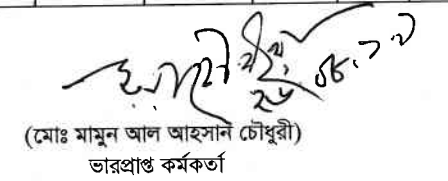 (মোঃ মামুন আল আহসান চৌধুরী)
ভারপ্রাপ্ত কর্মকর্তা